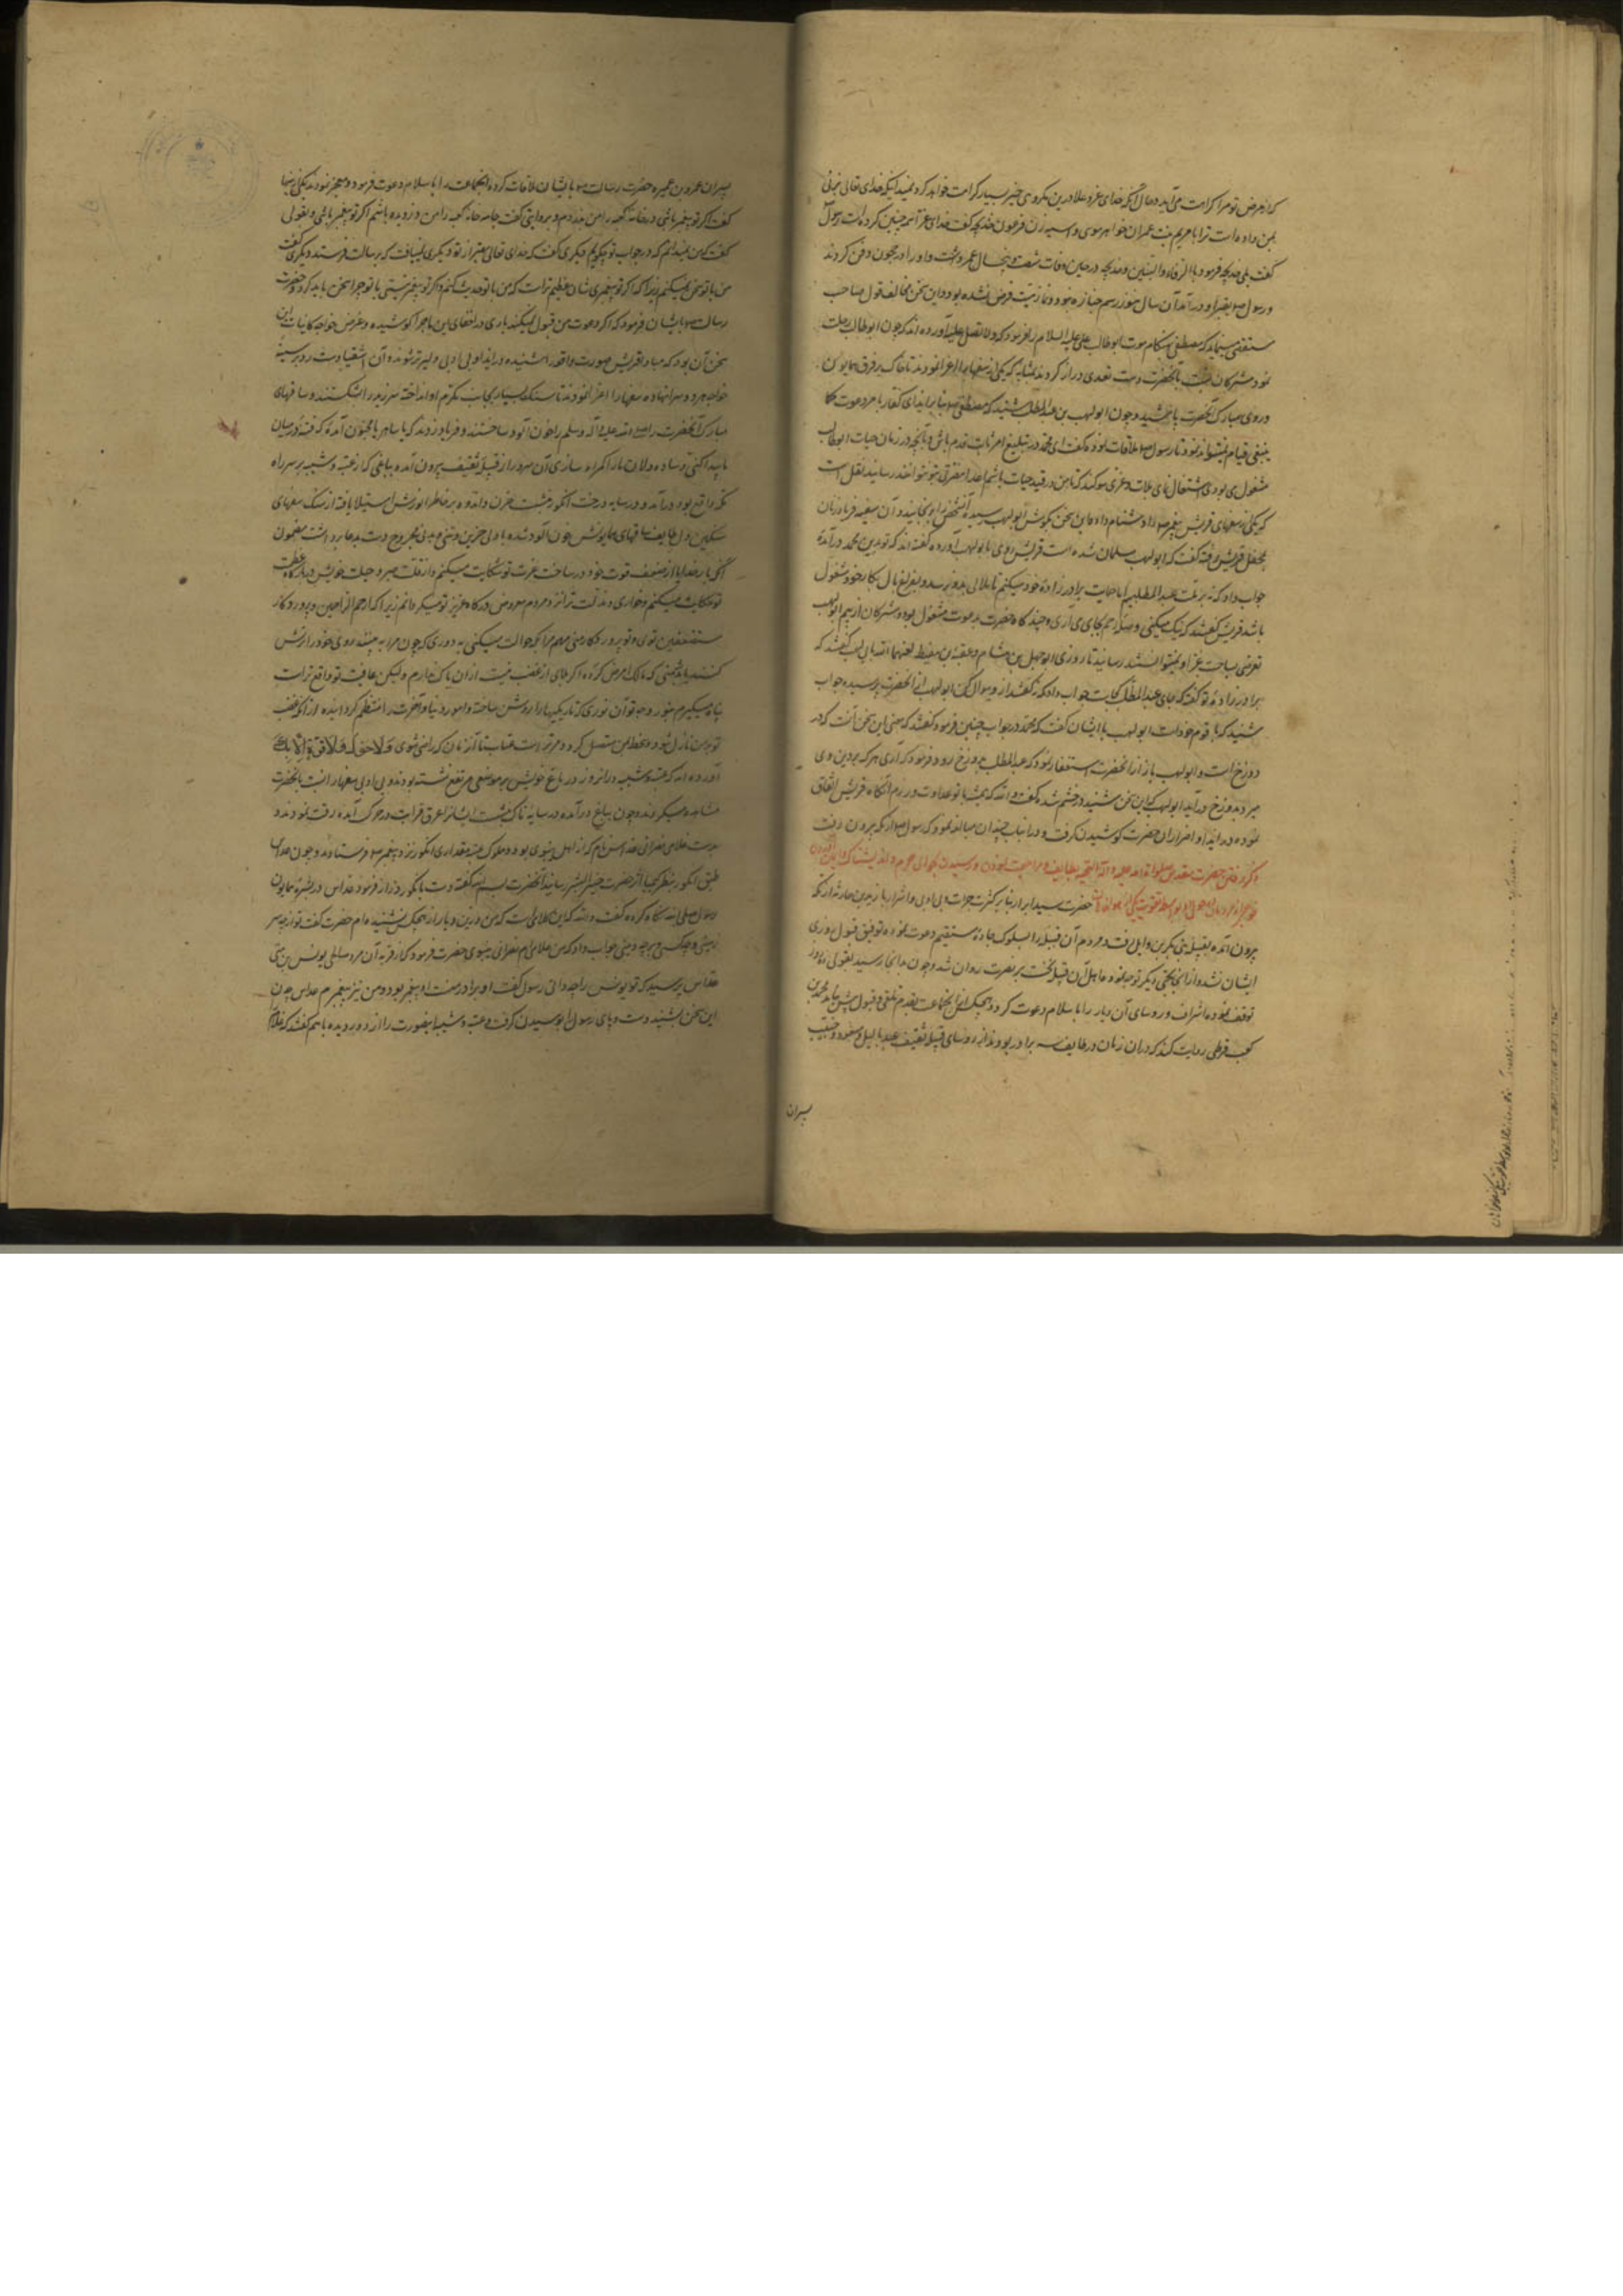 که از مرض تو مرا کراهت می‌آید و حال آنکه خدای عز و علا درین مکروه خیر بسیار کرامت خواهد کرد نمیدانی که خدای تعالی بزنی
بمن داده است ترا با مریم بنت عمران خواهر موسی و آسیه زن فرعون خدیجه گفت خدای عز اسمه چنین کرده است رسول
گفت بلی خدیجه فرمود بالرفاء والبنین و خدیجه در حین وفات شصت و پنجسال عمر داشت و او را در حجون دفن کردند
و رسول بقبر او درآمد آن سال هنوز رسم جنازه نبود و نماز میت فرض نشده بود و این سخن مخالف قول صاحب
مستقصی که مصطفی هنگام موت ابوطالب علی علیه السلام را فرمود که ولا تصل علیه آورده‌اند که چون ابوطالب رحلت
نمود مشرکان نسبت بآنحضرت دست تعدی دراز کردند بمثابه که یکی از سفها را اغرا نمودند تا خاک بر فرق همایون
و روی مبارک آنحضرت پاشید و چون ابولهب بن عبدالمطلب شنید که مصطفی بنابر ایذای کفار بامر دعوت کما
ینبغی قیام نمیتواند نمود با رسول ملاقات نموده گفت ای محمد در تبلیغ امر ثابت قدم باش و بآنچه در زمان حیات ابوطالب
مشغول می بودی اشتغال نمای بلات و عزی سوگند که تا من در قید حیات باشم احدی مضرتی بتو نتواند رسانید نقل است
که یکی از سفهای قریش پیغمبر را دشنام داد و این سخن بگوش ابولهب رسید آن شخص را برنجانید و آن سفیه فریاد زنان
بمحفل قریش رفته گفت که ابولهب مسلمان شده است قریش روی بابولهب آورده گفته‌اند که تو بدین محمد درآمدهٔ
جواب داد که نه بر ملت عبدالمطلبم اما حمایت برادرزادهٔ خود میکنم تا ملالی بدو نرسد و بفراغ بال بکار خود مشغول
باشد قریش گفتند که نیک میکنی و صلهٔ رحم بجای می آری و چند گاه حضرت بدعوت مشغول بود و مشرکان از بیم ابولهب
تعرضی بساحت عز او نمیتوانستند رسانید تا روزی ابوجهل بن هشام و عقبة بن معیط لعنهما الله بابی لهب گفتند که
برادرزادهٔ تو گفته که جای عبدالمطلب کجاست جواب داد که نه گفتند از وی سوال کن ابولهب از آنحضرت پرسیده جواب
شنید که با قوم خود است ابولهب با ایشان گفت که محمد در جواب چنین فرمود گفتند که معنی این سخن آنست که در
دوزخ است و ابولهب باز از آنحضرت استفسار نمود که عبدالمطلب بدوزخ رود فرمود که آری هر که بر دین وی
میرد بدوزخ درآید ابولهب که این سخن شنید در خشم شده گفت والله که همیشه با تو عداوت ورزم آنگاه قریش اتفاق
نموده در ایذا و اضرار آن حضرت کوشیدن گرفت و در آنباب چندان مبالغه نمود که رسول از مکه بیرون رفت
ذکر رفتن حضرت مقدس صلوات الله علیه و آله التحیه بطایف و مراجعت نمودن و رسیدن بحوالی حرم و اندیشناک
حضرت سید ابرار بنابر کثرت جرات و بی ادبی اشرار با زید بن حارثه از مکه
بیرون آمده بقبیله بنی بکر بن وایل رفت و مردم آن قبیله را بسلوک جادهٔ مستقیم دعوت نموده توفیق قبول روزی
ایشان نشد و از آنجا بجی دیگر توجه نمود و اهل آن قبیله نخست بر نصرت روان شد و چون بدانجا رسید بقولی ده روز
توقف نموده اشراف و روسای آن دیار را باسلام دعوت کرد و هیچیک از آنجماعت بقدم تلقی و قبول پیش نیامد محمد بن
کعب قرظی روایت کند که در آن زمان در طایف سه برادر بودند از روسای قبیلهٔ ثقیف عبد یالیل و مسعود و حبیب
پسران
پسران عمرو بن عمیره حضرت رسالت با ایشان ملاقات کرده آنجماعت را باسلام دعوت فرمود و معجز نمود یکی از اینها
گفت اگر تو پیغمبر باشی و بروایتی گفت جامه خانه کعبه را من دزدیده باشم اگر تو پیغمبر باشی و بقولی
گفت که من نمیدانم که در جواب تو چگویم دیگری گفت که خدای تعالی بغیر از تو دیگری نیافت که برسالت فرستد دیگری گفت
من با تو سخن نمیکنم زیرا که اگر تو پیغمبری شان عظیم تراست که من با تو حدیث کنم و اگر تو پیغمبر نیستی با تو چرا سخن باید کرد و حضرت
رسالت بایشان فرمود که اگر دعوت من قبول نمیکنید باری در اخفای این ماجرا کوشیده و غرض خواجه کاینات ازین
سخن آن بود که مبادا قریش صورت واقعه را شنیده در ایذا و بی ادبی دلیرتر شوند و آن اشقیا دست رد بر سینهٔ
خواجه هر دو سرا نهاده سفها را اغرا نمودند تا سنگ بسیار بجانب مکرم او انداخته سر زید را شکستند و ساقهای
مبارک آنحضرت را صلی الله علیه و آله و سلم بخون آلوده ساختند و فریاد زدند که یا ساحر یا مجنون آمدهٔ که فتنه در میان
ما پیدا کنی و ساده دلان ما را گمراه سازی آن سرور از قبیلهٔ ثقیف بیرون آمده بباغی که از عتبه و شیبه بر سر راه
مکه واقع بود درآمد و در سایه درخت انگور نشست حزن و اندوه بر خاطر انورش استیلا یافته از سنگ سفهای
سنگین دل طایف ساقهای همایونش خون آلود شده با دلی حزین و تنی مجروح دست بدعا برداشت مضمون
آنکه بار خدایا از ضعف قوت خود در ساحت عزت تو شکایت میکنم و از قلت صبر و حیلت خویش در بارگاه عظمت
تو حکایت میکنم و خواری و مذلت نزد مردم معروض درگاه عزیز تو میگردانم زیرا که ارحم الراحمین و پروردگار
مستضعفین توی و تو پروردگار منی مهم مرا بکه حوالت میکنی بدوری که چون مرا بیند روی خود را ترش
کنند یا بدشمنی که مالک امر من کردهٔ اگر بلای از غضب نیست از آن باک ندارم ولیکن عافیت تو واقع تر است
پناه میگیرم بنور وجه تو آن نوری که تاریکیها را روشن ساخته و امور دنیا و آخرت را منتظم گردانیده از آنکه غضب
تو بر من نازل شود و سخط بمن متصل گردد و مر تراست عتاب تا آنزمان که راضی شوی ولا حول ولا قوة الا بک
آورده‌اند که عتبه و شیبه در آنروز در باغ خویش بر موضعی مرتفع نشسته بودند و بی ادبی سفها را نسبت بآنحضرت
مشاهده میکردند و چون بباغ درآمده در سایه تاک نشست ایشانرا عرق قرابت در حرکت آمده رقت نمودند و
بدست غلامی نصرانی عداس نام که از اهل نینوی بود و مملوک عتبه مقداری انگور نزد پیغمبر فرستادند و چون عداس
طبق انگور بنظر کیمیا اثر حضرت خیر البشر رسانید آنحضرت بسم الله گفته دست بانگور دراز فرمود عداس در بشرهٔ همایون
رسول صلی الله نگاه کرده گفت والله که این کلامی است که من درین دیار از هیچکس نشنیده‌ام حضرت گفت تو از چه سر
زمینی و چه کسی و بر چه دینی جواب داد که من غلامی‌ام نصرانی نینوی حضرت فرمود که از قریه آن مرد صالح یونس بن متی
عداس پرسید که تو یونس را چه دانی رسول گفت او برادر منست او پیغمبر بود و من نیز پیغمبرم عداس چون
این سخن بشنید دست و پای رسول را بوسیدن گرفت و عتبه و شیبه اینصورت را از دور دیده با هم گفتند که غلام